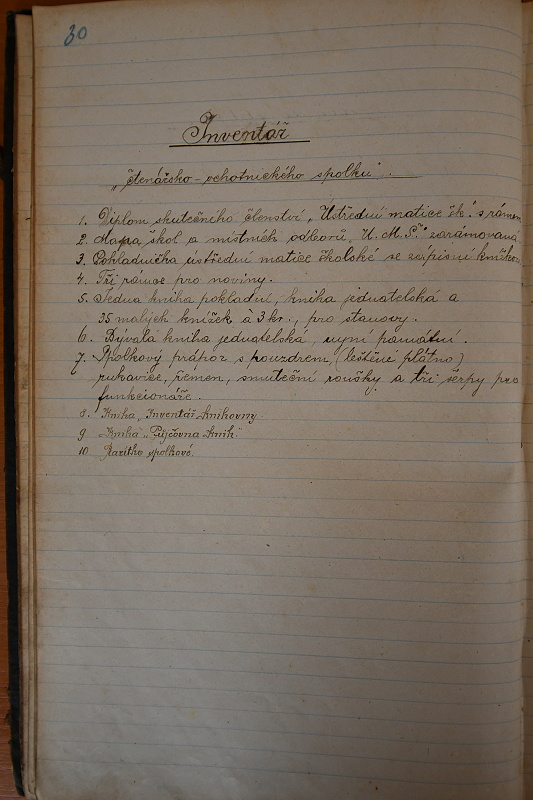 30
Inventář
„čtenářsko-ochotnického spolku".
1. Diplom skutečného členství „Ústřední matice šk." s rámem
2. Mapa škol a místních odborů „Ú. M. Š." zarámovaná
3. Pokladnička ústřední matice školské se zápisní knížkou
4. Tři rámce pro noviny.
5. Jedna kniha pokladní, kniha jednatelská a
35 malých knížek à 3 kr., pro stanovy.
6. Bývalá kniha jednatelská, nyní památní.
7. Spolkový prápor s pouzdrem, (leštěné plátno)
rukavice, řemen, smuteční roušky a tři šerpy pro
funkcionáře.
8. Kniha „Inventář knihovny
9 Kniha „Půjčovna knih"
10 spolkové.